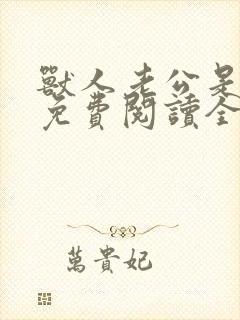 獸人老公是
免費閱讀全
萬貴妃